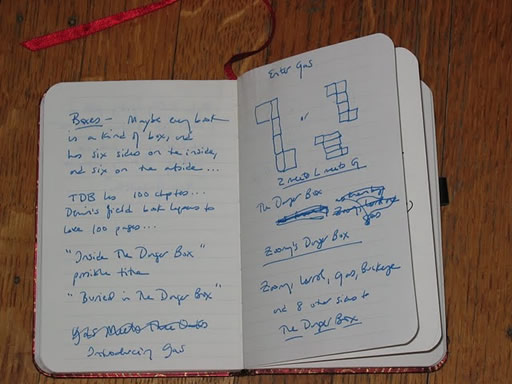 Boxes – Maybe every book
is a kind of box, and
has six sides on the inside,
and six on the outside...
TDB has 100 chapters...
field book happens to
have 100 pages...
"Inside The Danger Box"
possible title
"Buried in The Danger Box"
Introducing Gas
Enter Gas
or
Z meets L meets G
The Danger Box
Zoomy's Danger Box
Zoomy, Lorrol, Gas, Buckeye
and 8 other sides to
The Danger Box